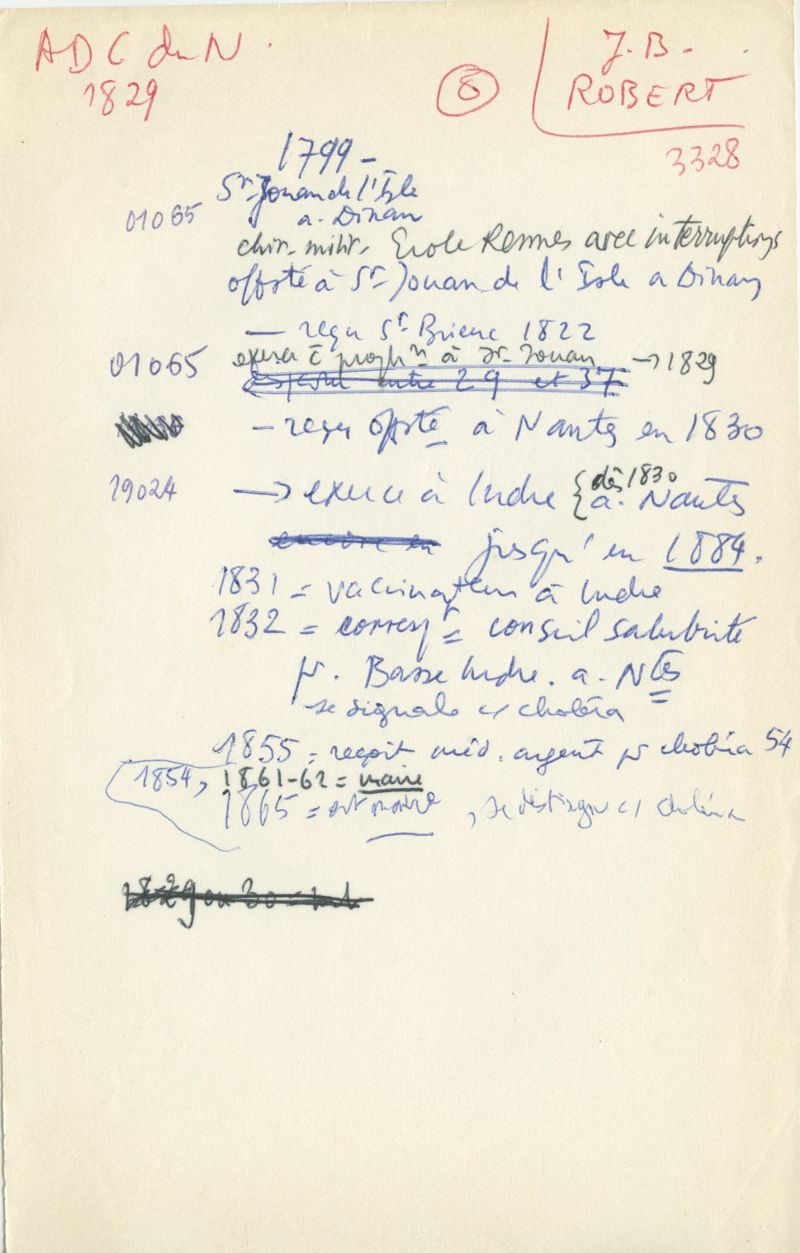 ADC du N.
1829
8
J. B.
ROBERT
3328
1799 -
St Jouan de l'Isle
01065
a. Dinan
chir. milit. Ecole Rennes avec interruptions
offsté à St Jouan de l'Isle a Dinan
- reçu St Brieuc 1822
01065 exerce à St Jouan → 1829
entre 29 et 37
- reçu offsté à Nantes en 1830
19024 → exerce à Indre { dès 1830 a. Nantes
encore en jusqu'en 1884.
1831 = vaccinateur à Indre
1832 = correspt = conseil salubrité
pr. Basse Indre. a. Ntes
se signale c/ choléra
1855 = reçoit méd. argent pr choléra 54
1854, 1861-62 = maire
1865 = est maire, se distingue c/ choléra
1829 ou 30